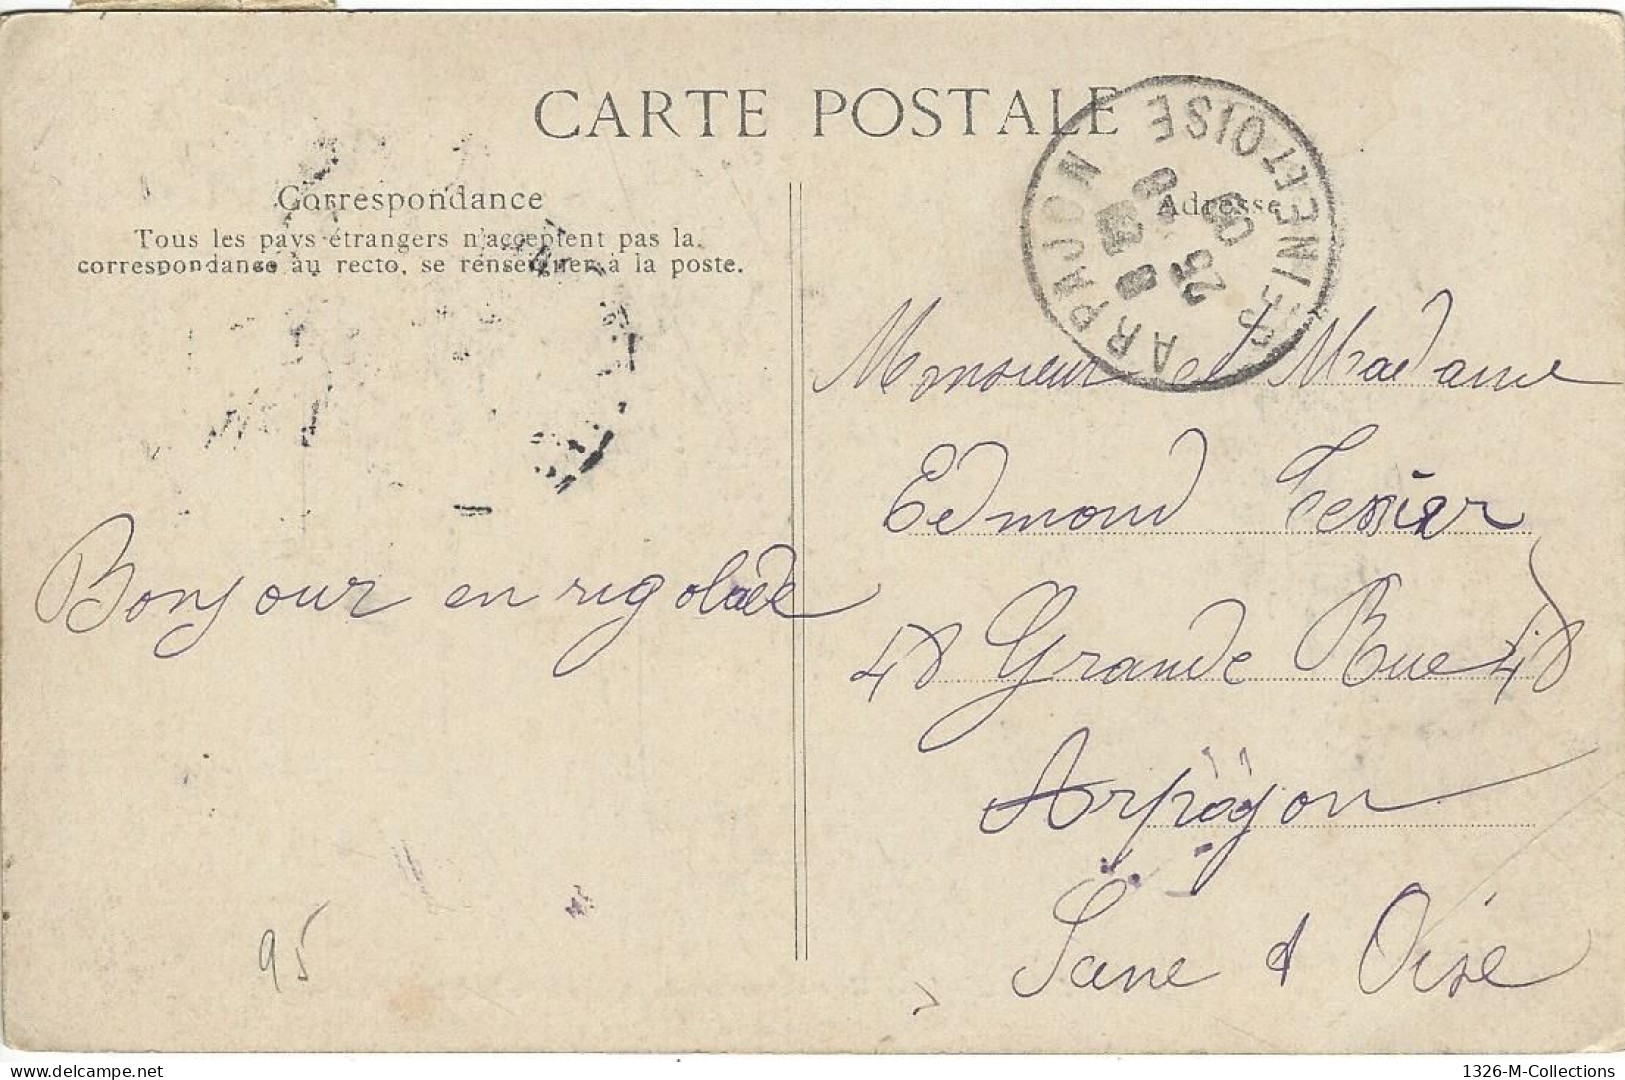 CARTE POSTALE
Correspondance
Tous les pays étrangers n'acceptent pas la
correspondance au recto, se renseigner à la poste.
Bonjour en rigolade
95
Adresse
ARPAJON SEINE-ET-OISE
25
Monsieur et Madame
Edmond Tessier
48 Grande Rue 48
Arpajon
Seine et Oise
delcampe.net
1326-M-Collections